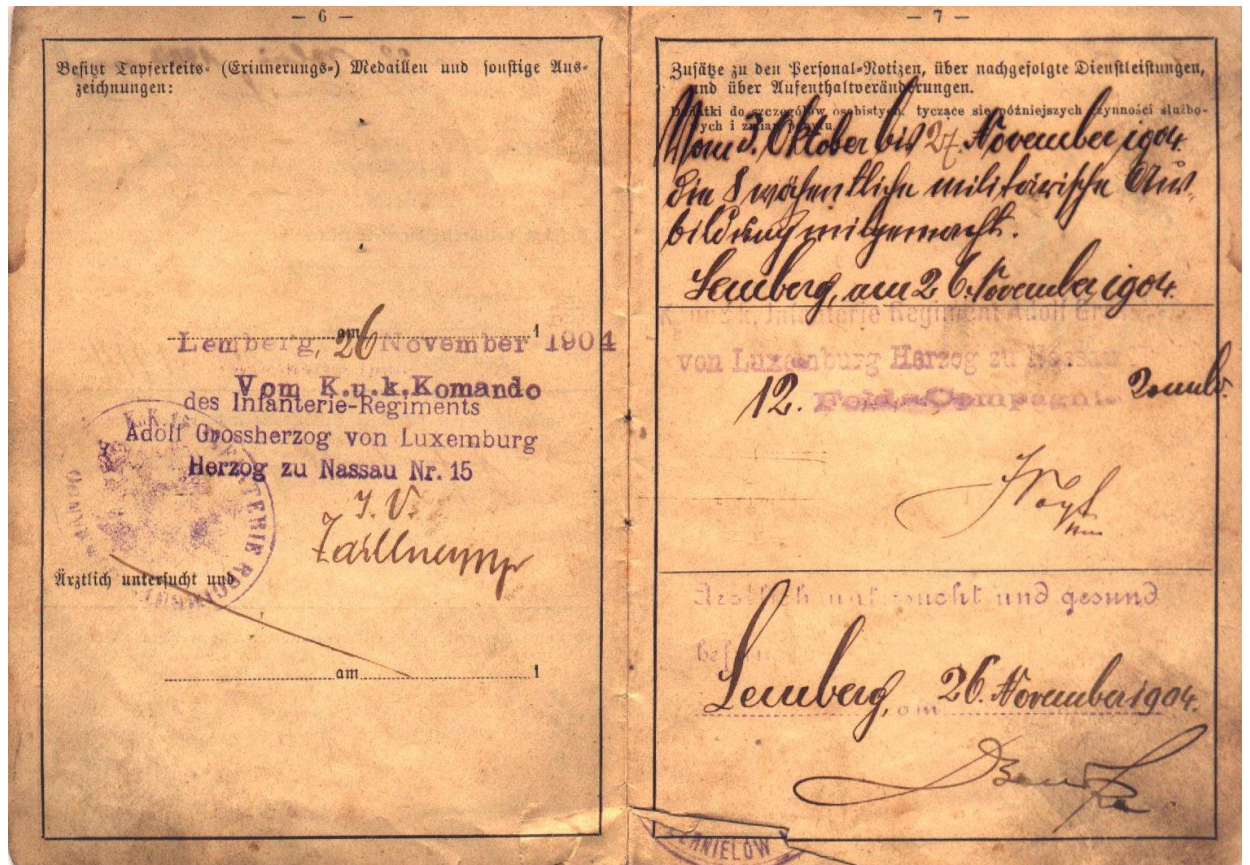 — 6 —
Besitzt Tapferkeits- (Erinnerungs-) Medaillen und sonstige Aus-
zeichnungen:
am 1
Lemberg, 26 November 1904
Vom K.u.k. Komando
des Infanterie-Regiments
Adolf Grossherzog von Luxemburg
Herzog zu Nassau Nr. 15
I. V.
Ärztlich untersucht und
am 1
— 7 —
Zusätze zu den Personal-Notizen, über nachgefolgte Dienstleistungen,
und über Aufenthaltveränderungen.
Dodatki do szczegółów osobistych, tyczące się późniejszych czynności służbo-
wych i zmian pobytu.
Vom 3. Oktober bis 27. November 1904
die 8 wöchentliche militärische Aus-
bildung mitgemacht.
Lemberg, am 26. November 1904.
K. und k. Infanterie Regiment Adolf Gross
von Luxemburg Herzog zu Nassau
12. Feld-Compagnie
Aerztlich untersucht und gesund
befun
Lemberg, am 26. November 1904.